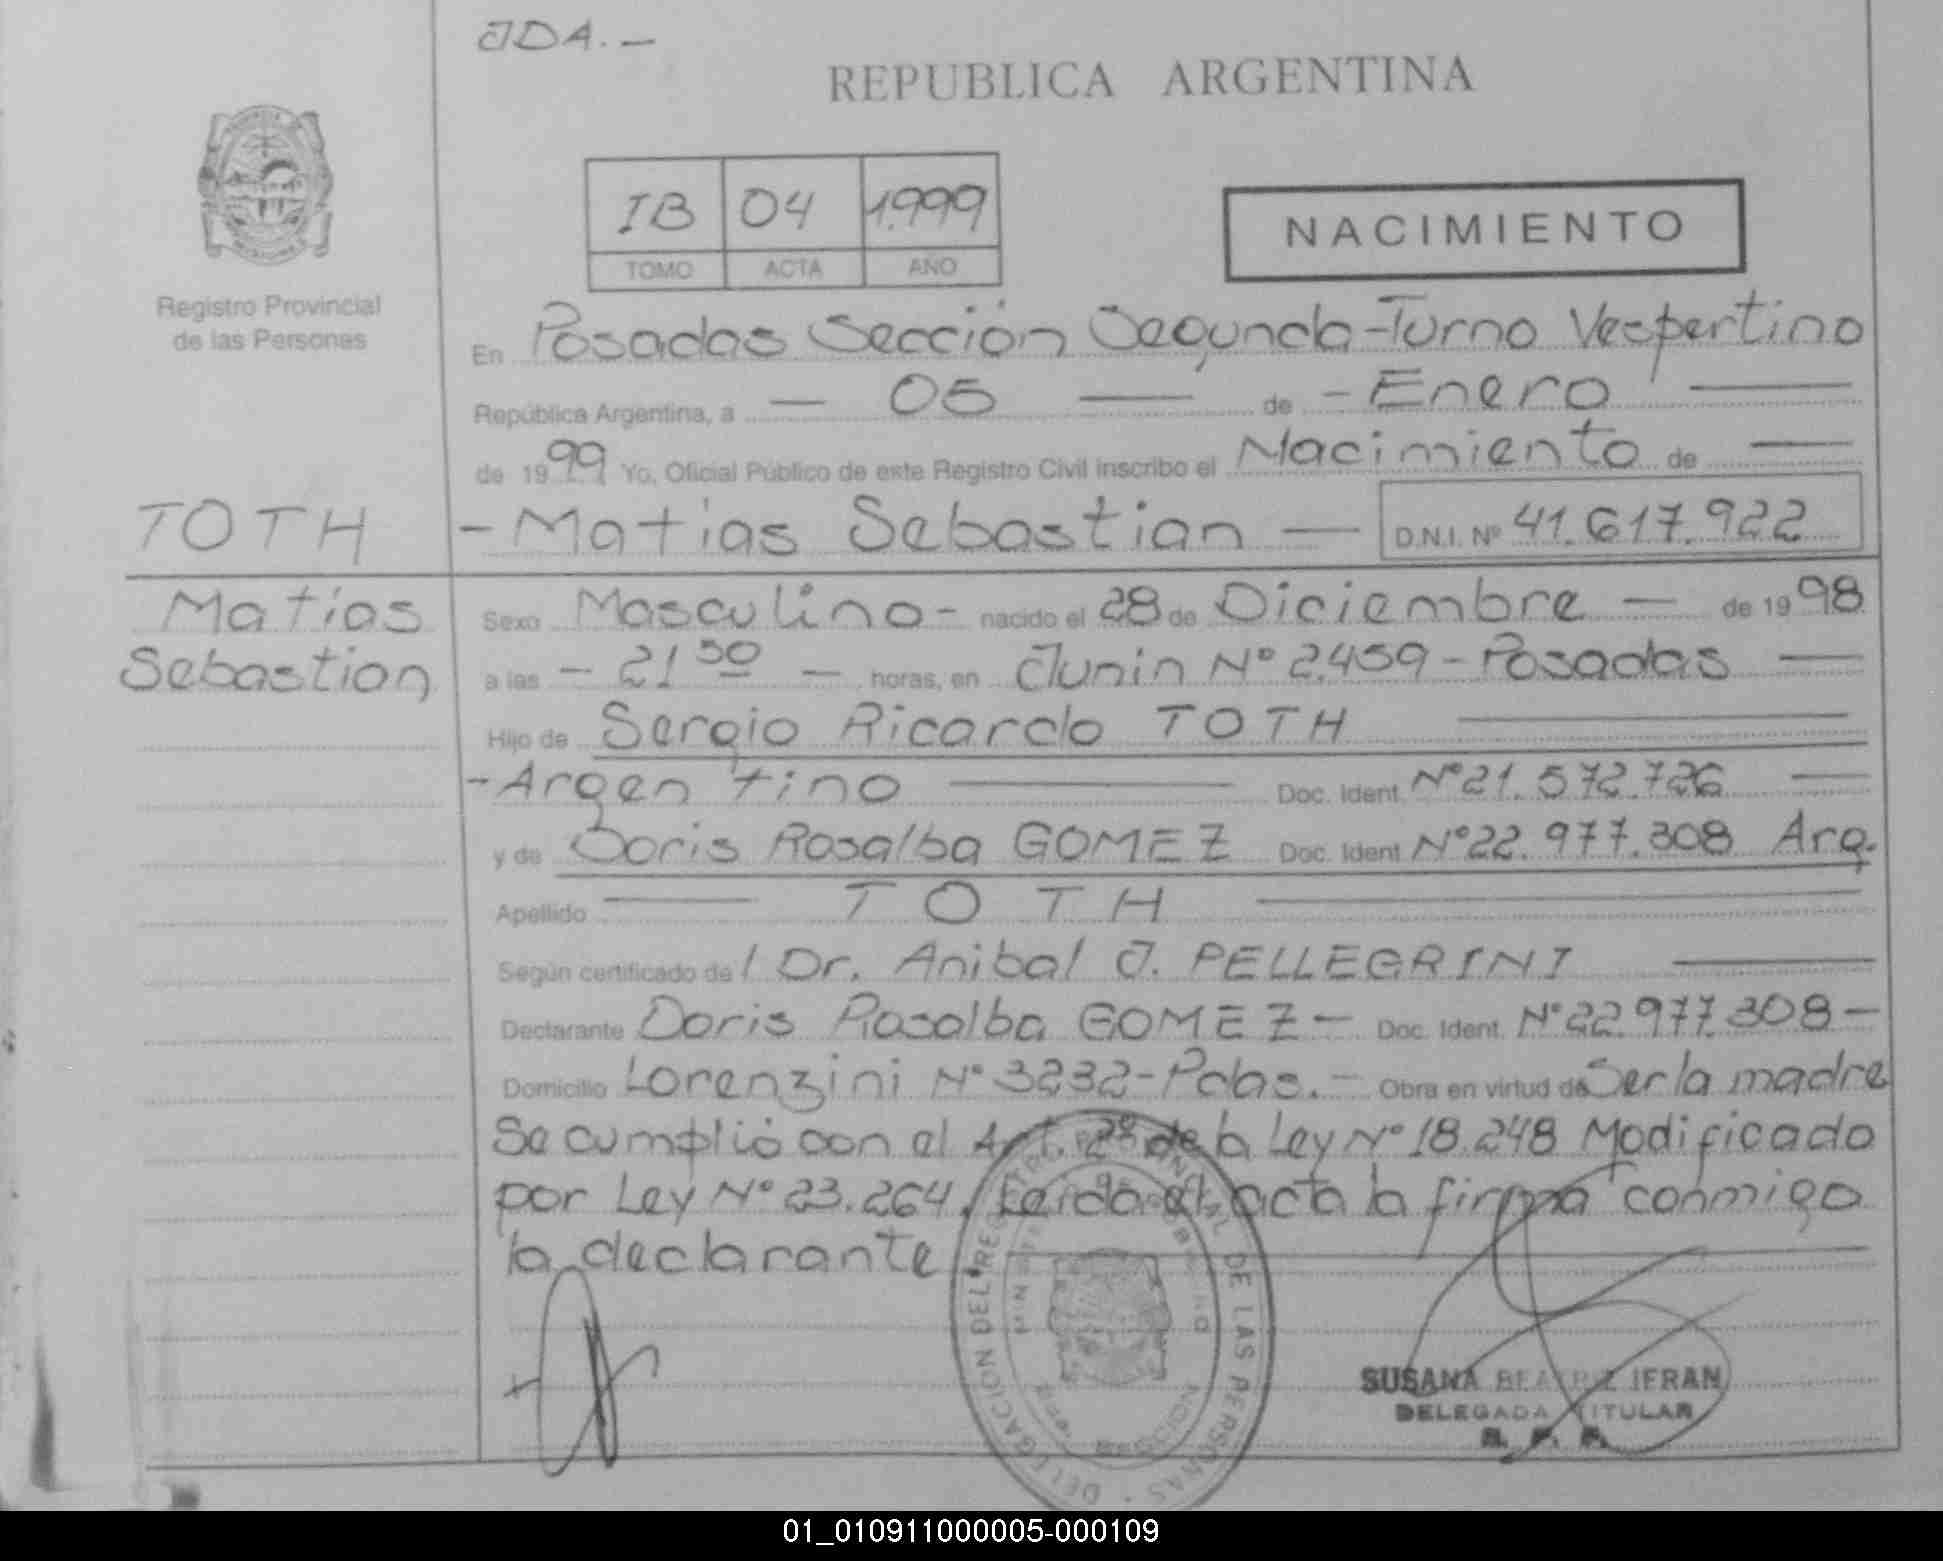 JDA.-
REPUBLICA ARGENTINA
IB 04 1.999
TOMO ACTA AÑO
NACIMIENTO
Registro Provincial
de las Personas
En Posadas Sección Segunda-Turno Vespertino
República Argentina, a - 05 - de - Enero -
de 1999 Yo, Oficial Público de este Registro Civil inscribo el Nacimiento de -
TOTH
- Matias Sebastian - D.N.I. Nº 41.617.922
Matias
Sebastian
Sexo Masculino- nacido el 28 de Diciembre - de 1998
a las - 21 50 - horas, en Junin Nº 2.459 - Posadas -
Hijo de Sergio Ricardo TOTH
-Argentino - Doc. Ident. Nº 21.572.726 -
y de Doris Rosalba GOMEZ Doc. Ident Nº 22.977.308 Arg.
Apellido - TOTH -
Según certificado de l Dr. Anibal J. PELLEGRINI -
Declarante Doris Rosalba GOMEZ - Doc. Ident. Nº 22.977.308 -
Domicilio Lorenzini Nº 3232-Pdas.- Obra en virtud de Ser la madre
Se cumplió con el Art. 2º de la Ley Nº 18.248 Modificado
por Ley Nº 23.264. Leida el acta la firma conmigo
la declarante.
DELEGACION DEL REGISTRO PROVINCIAL DE LAS PERSONAS
SUSANA BEATRIZ IFRAN
DELEGADA TITULAR
R. P. P.
01_010911000005-000109